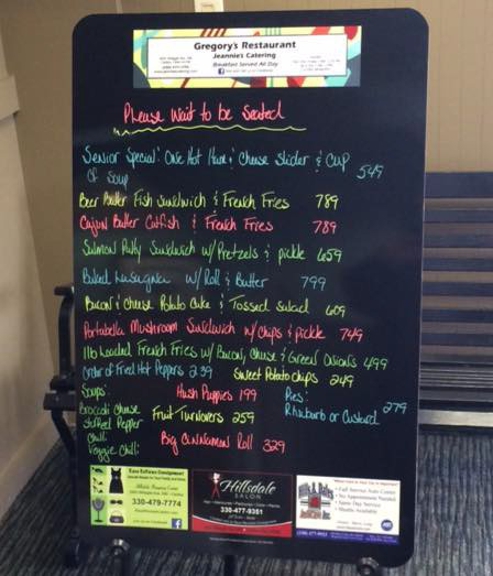 Gregory's Restaurant
Jeannie's Catering
Breakfast Served All Day
Please Wait to be Seated
Senior Special: One Hot Ham & Cheese Slider & Cup of Soup 549
Beer Batter Fish Sandwich & French Fries 789
Cajun Butter Catfish & French Fries 789
Salmon Patty Sandwich w/Pretzels & pickle 659
Baked Lasagna w/ Roll & Butter 799
Bacon & Cheese Potato Cake & Tossed Salad 609
Portabella Mushroom Sandwich w/chips & pickle 749
1lb Loaded French Fries w/ Bacon, Cheese & Green Onions 499
Order of Fried Hot Peppers 239 Sweet Potato chips 249
Soups: Hush Puppies 199 Pies:
Rhubarb or Custard 279
Broccoli Cheese
Stuffed Pepper Fruit Turnovers 259
Chili
Veggie Chili Big Cinnamon Roll 329
330-479-7774
Hillsdale
SALON
330-477-9351
• Full Service Auto Center
• No Appointment Needed
• Same Day Service